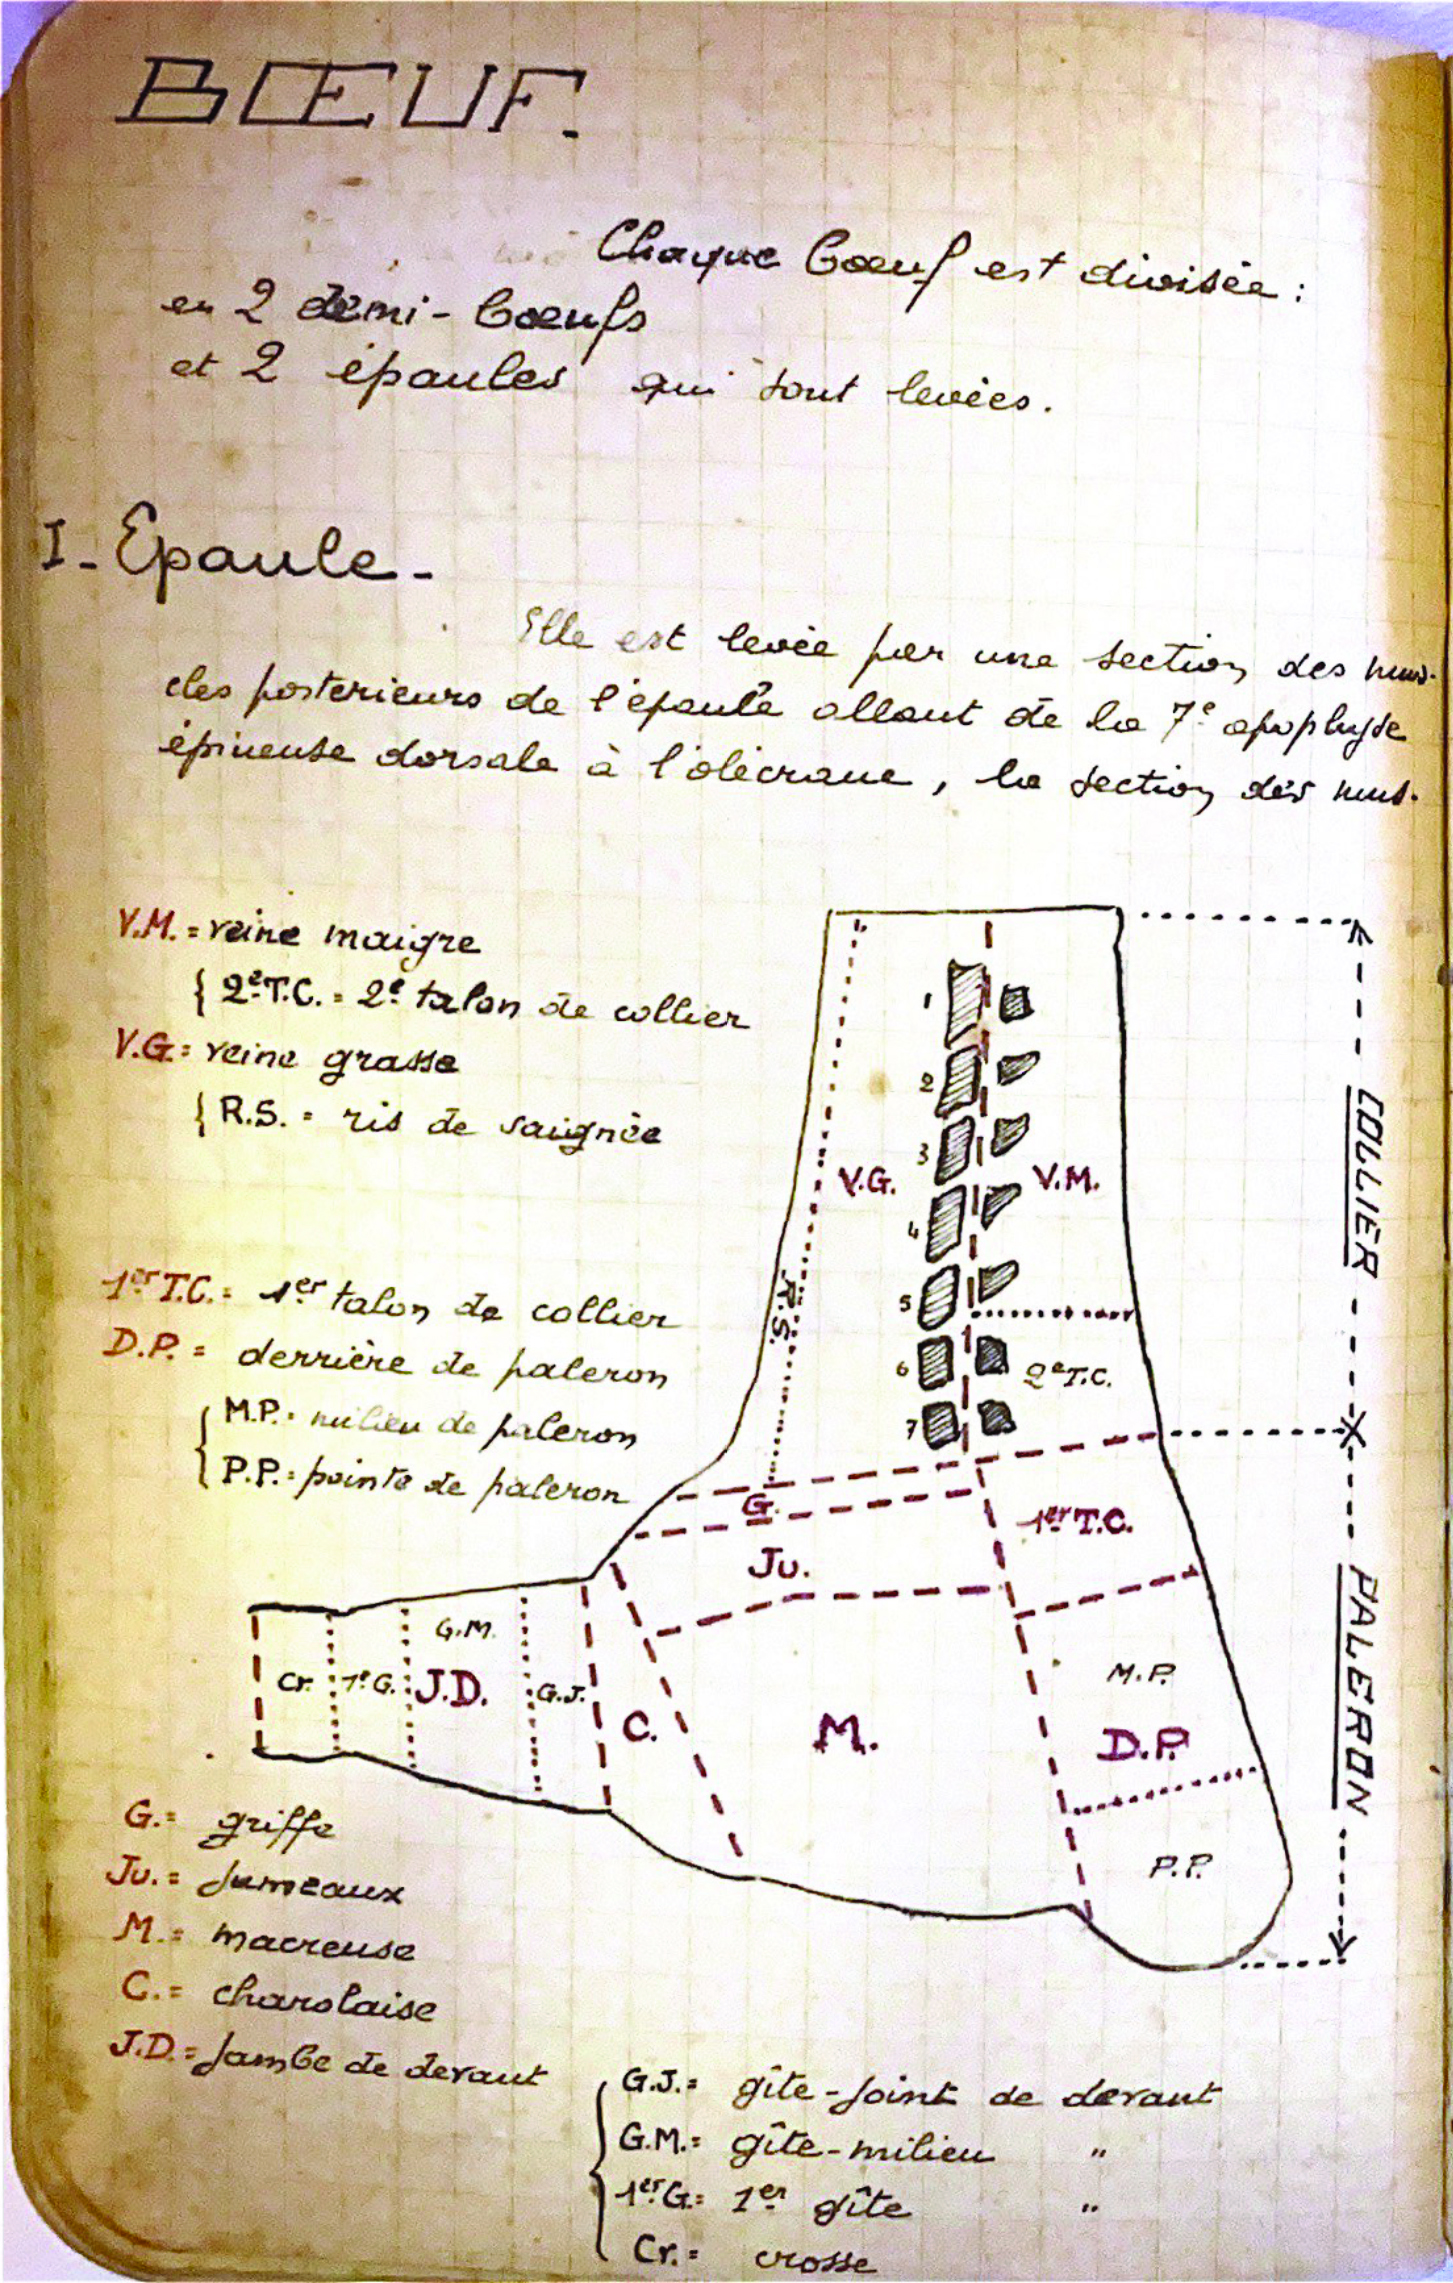 BŒUF.
Chaque bœuf est divisée :
en 2 demi-bœufs
et 2 épaules qui sont levées.
I - Epaule -
Elle est levée par une section des mus-
cles posterieurs de l'épaule allant de la 7e apophyse
épineuse dorsale à l'olécrane, la section des mus-
V.M. = veine maigre
{ 2e T.C. = 2e talon de collier
V.G. = veine grasse
{ R.S. = ris de saignée
1er T.C. = 1er talon de collier
D.P. = derrière de paleron
{ M.P. = milieu de paleron
P.P. = pointe de paleron
1
2
3
V.G. V.M.
4
R.S.
5
6 2e T.C.
7
COLLIER
G.
1er T.C.
Ju.
G.M.
Cr. 1e G. J.D. G.J.
C. M.
M.P.
D.P.
P.P.
PALERON
G. = griffe
Ju. = Jumeaux
M. = macreuse
C. = charolaise
J.D. = Jambe de devant
{ G.J. = gîte-joint de devant
G.M. = gîte-milieu "
1er G. = 1er gîte "
Cr. = crosse